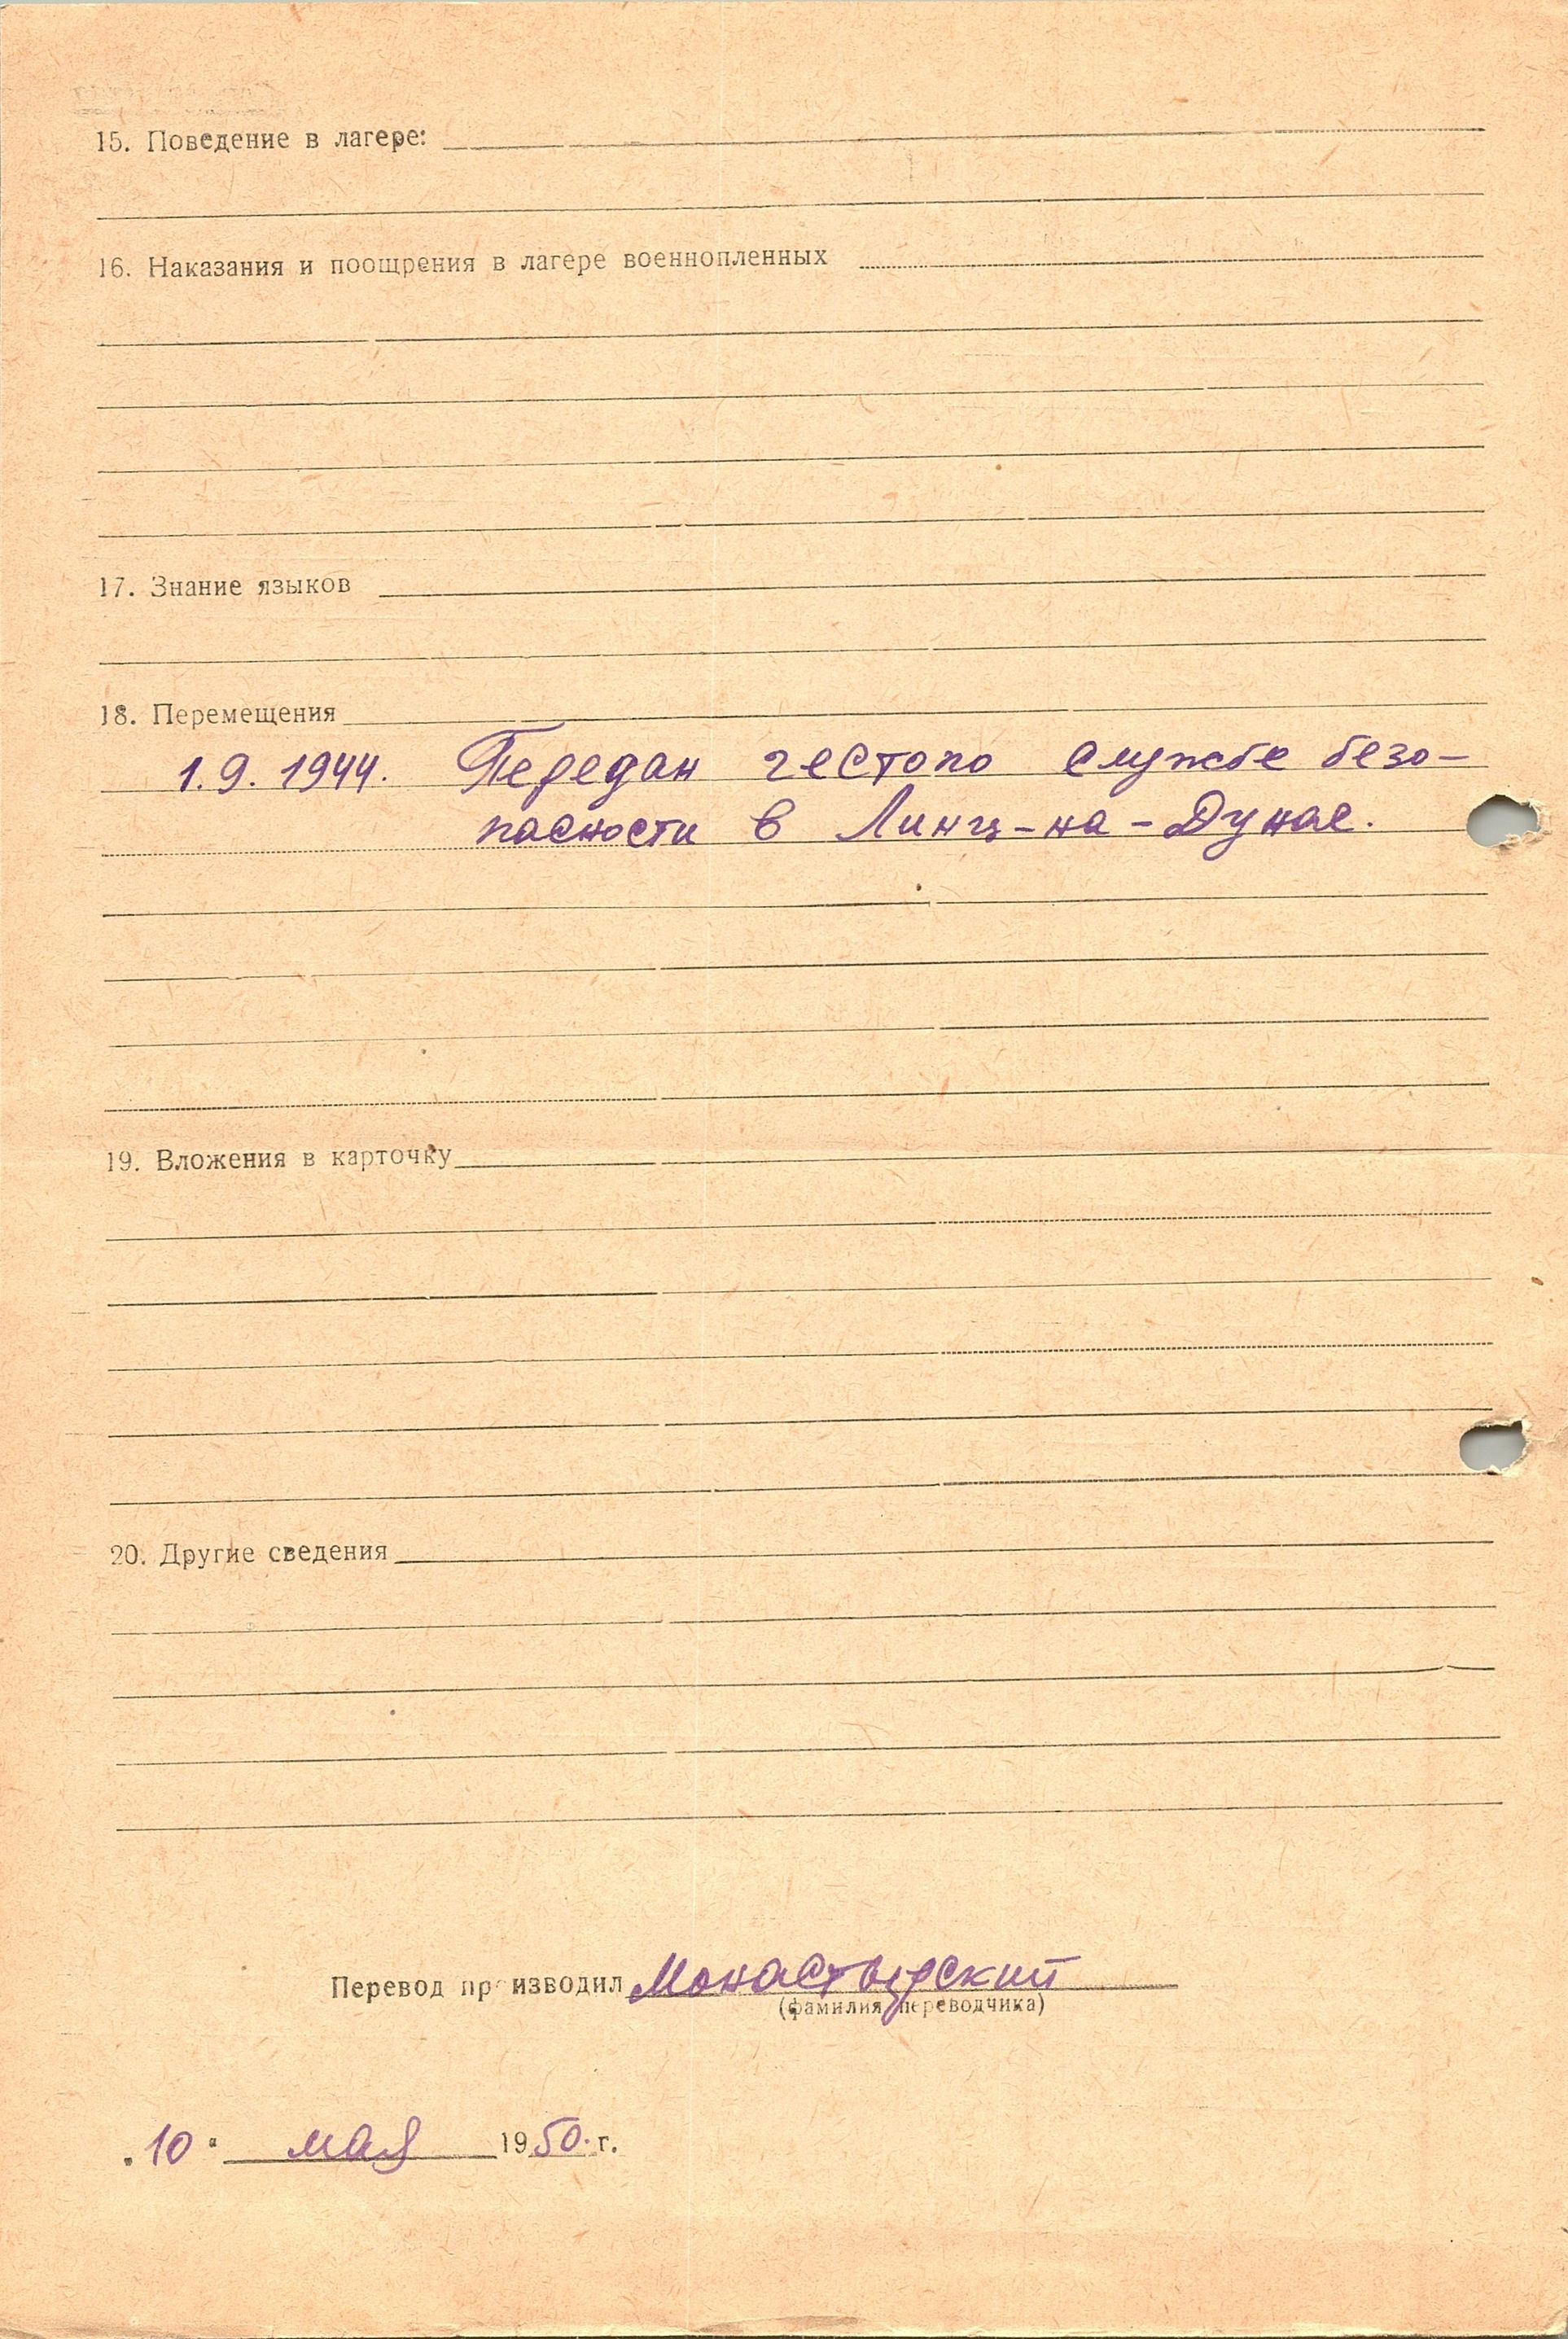 15. Поведение в лагере:
16. Наказания и поощрения в лагере военнопленных
17. Знание языков
18. Перемещения
1.9.1944. Передан гестопо службе безо-
пасности в Линц-на-Дунае.
19. Вложения в карточку
20. Другие сведения
Перевод производил Монастырский
(фамилия переводчика)
"10" мая 1950. г.